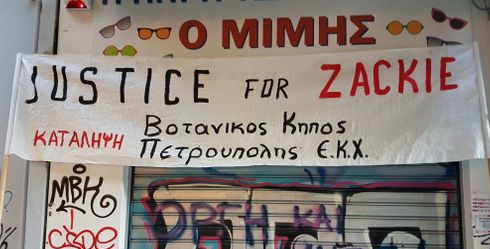 Ο ΜΙΜΗΣ
JUSTICE FOR ZACKIE
ΚΑΤΑΛΗΨΗ
Βοτανικος Κηπος
Πετρουπολης Ε.Κ.Χ.
ΜΒΚ
ΟΡΓΗ ΚΑΙ